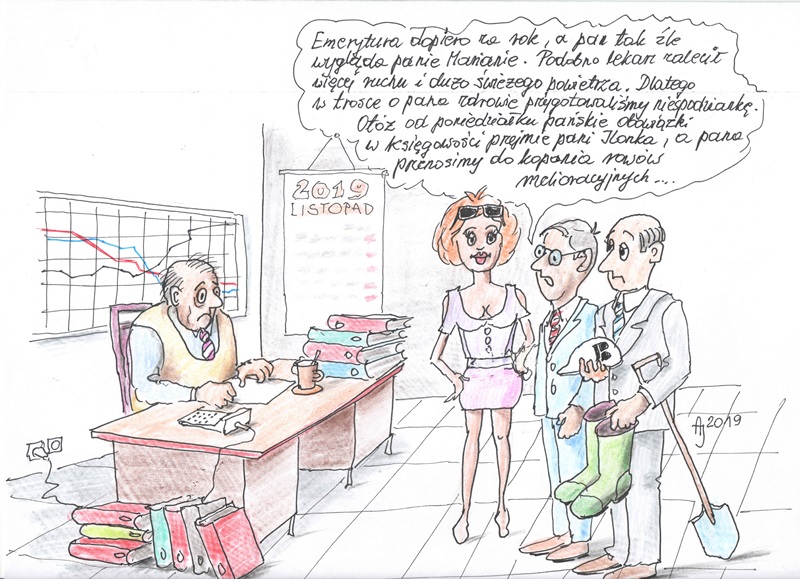 Emerytura dopiero za rok, a pan tak źle
wygląda panie Marianie. Podobno lekarz zalecił
więcej ruchu i dużo świeżego powietrza. Dlatego
w trosce o pana zdrowie przygotowaliśmy niespodziankę.
Otóż od poniedziałku pańskie obowiązki
w księgowości przejmie pani Ilonka, a pana
przenosimy do kopania rowów
melioracyjnych...
2019
LISTOPAD
AJ 2019